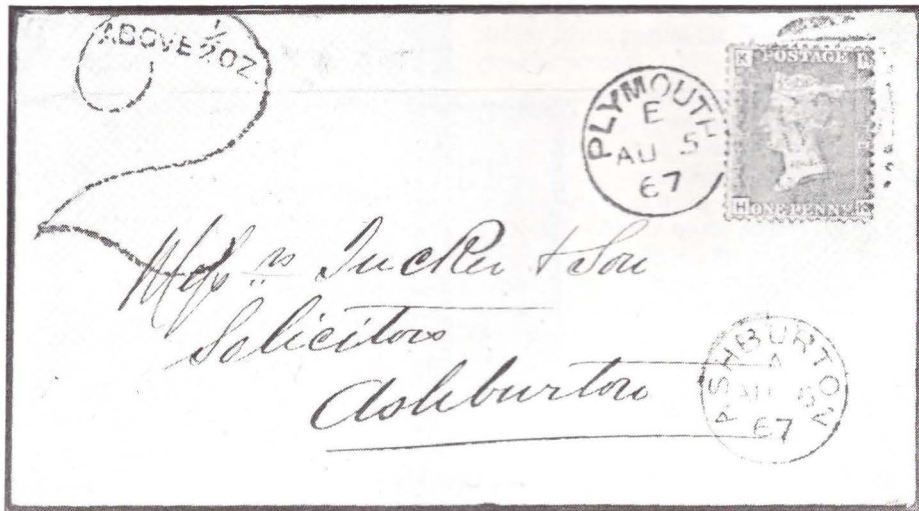 ABOVE 1/2 OZ
2
PLYMOUTH
E
AU 5
67
POSTAGE
ONE PENNY
Messrs Tucker & Son
Solicitors
Ashburton
ASHBURTON
A
AU 6
67